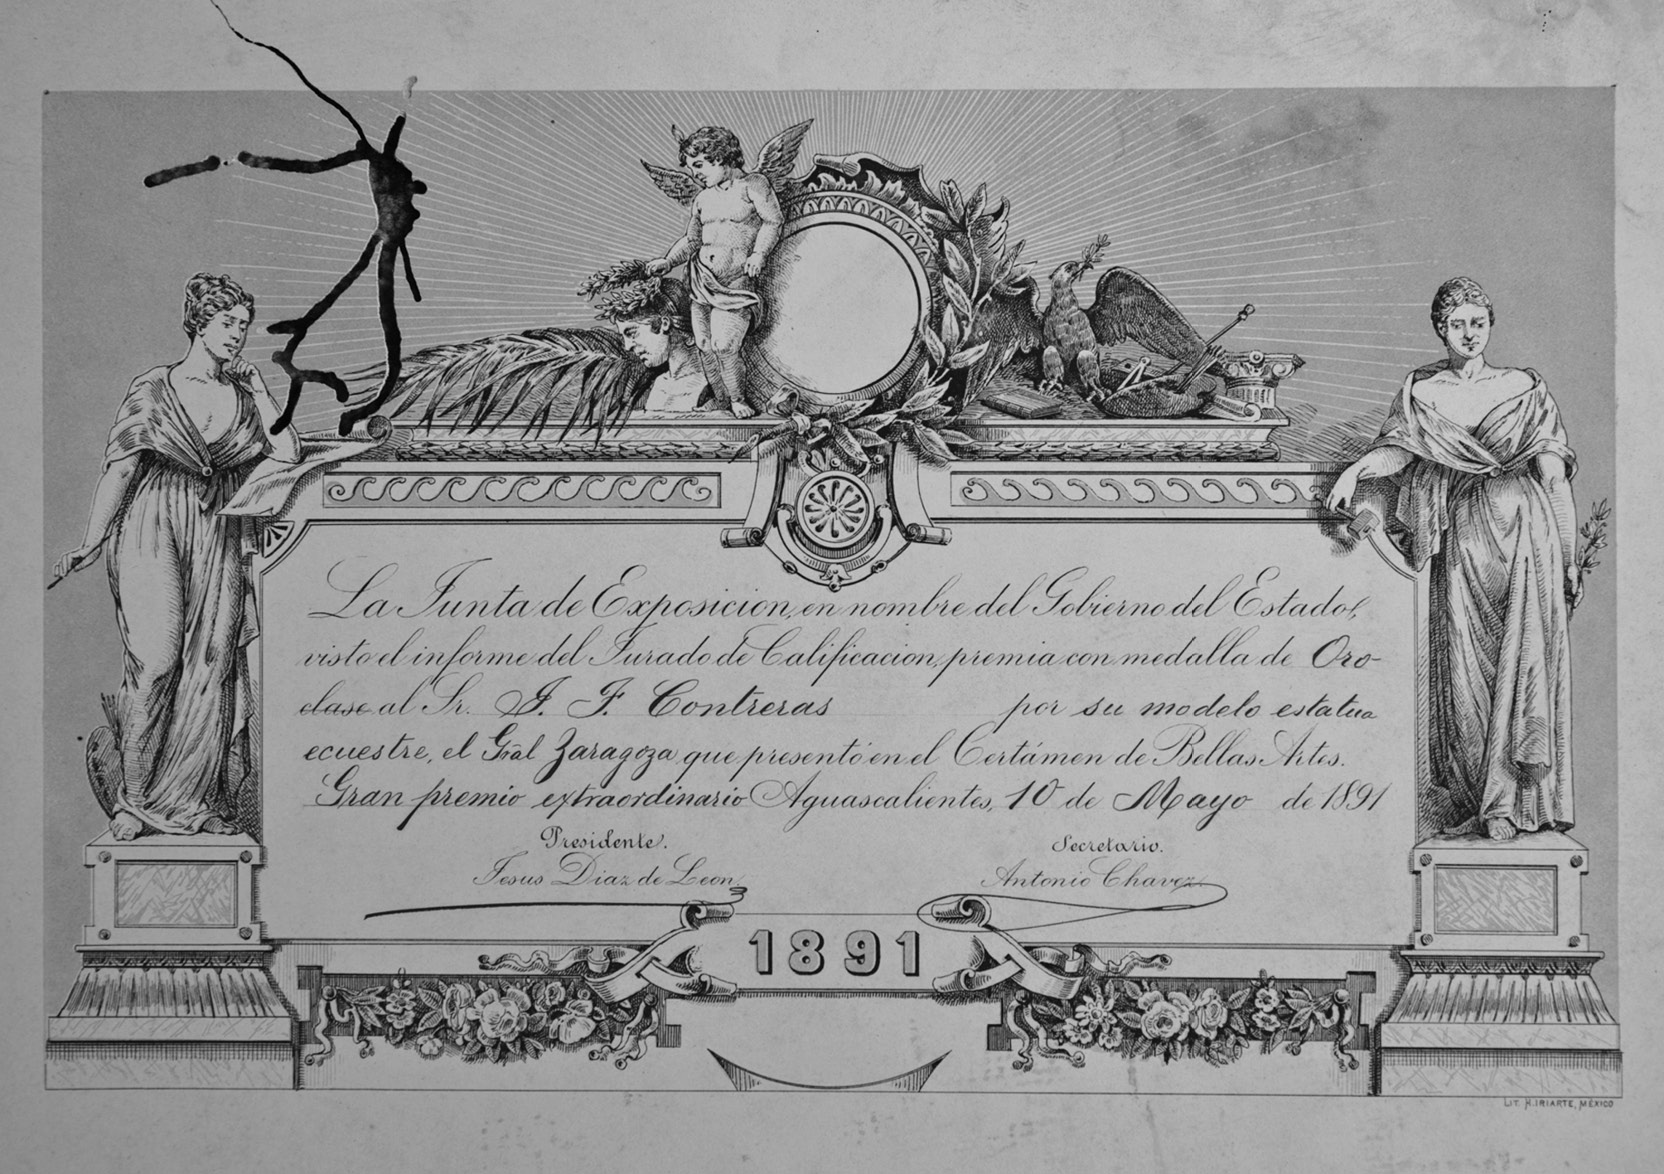 La Junta de Exposicion, en nombre del Gobierno del Estado,
visto el informe del Jurado de Calificacion, premia con medalla de Oro-
clase al Sr. J. F. Contreras por su modelo estatua
ecuestre, el Gral Zaragoza que presentó en el Certámen de Bellas Artes.
Gran premio extraordinario Aguascalientes, 10 de Mayo de 1891
Presidente. Secretario.
Jesus Diaz de Leon Antonio Chavez
1891
LIT. H. IRIARTE, MÉXICO